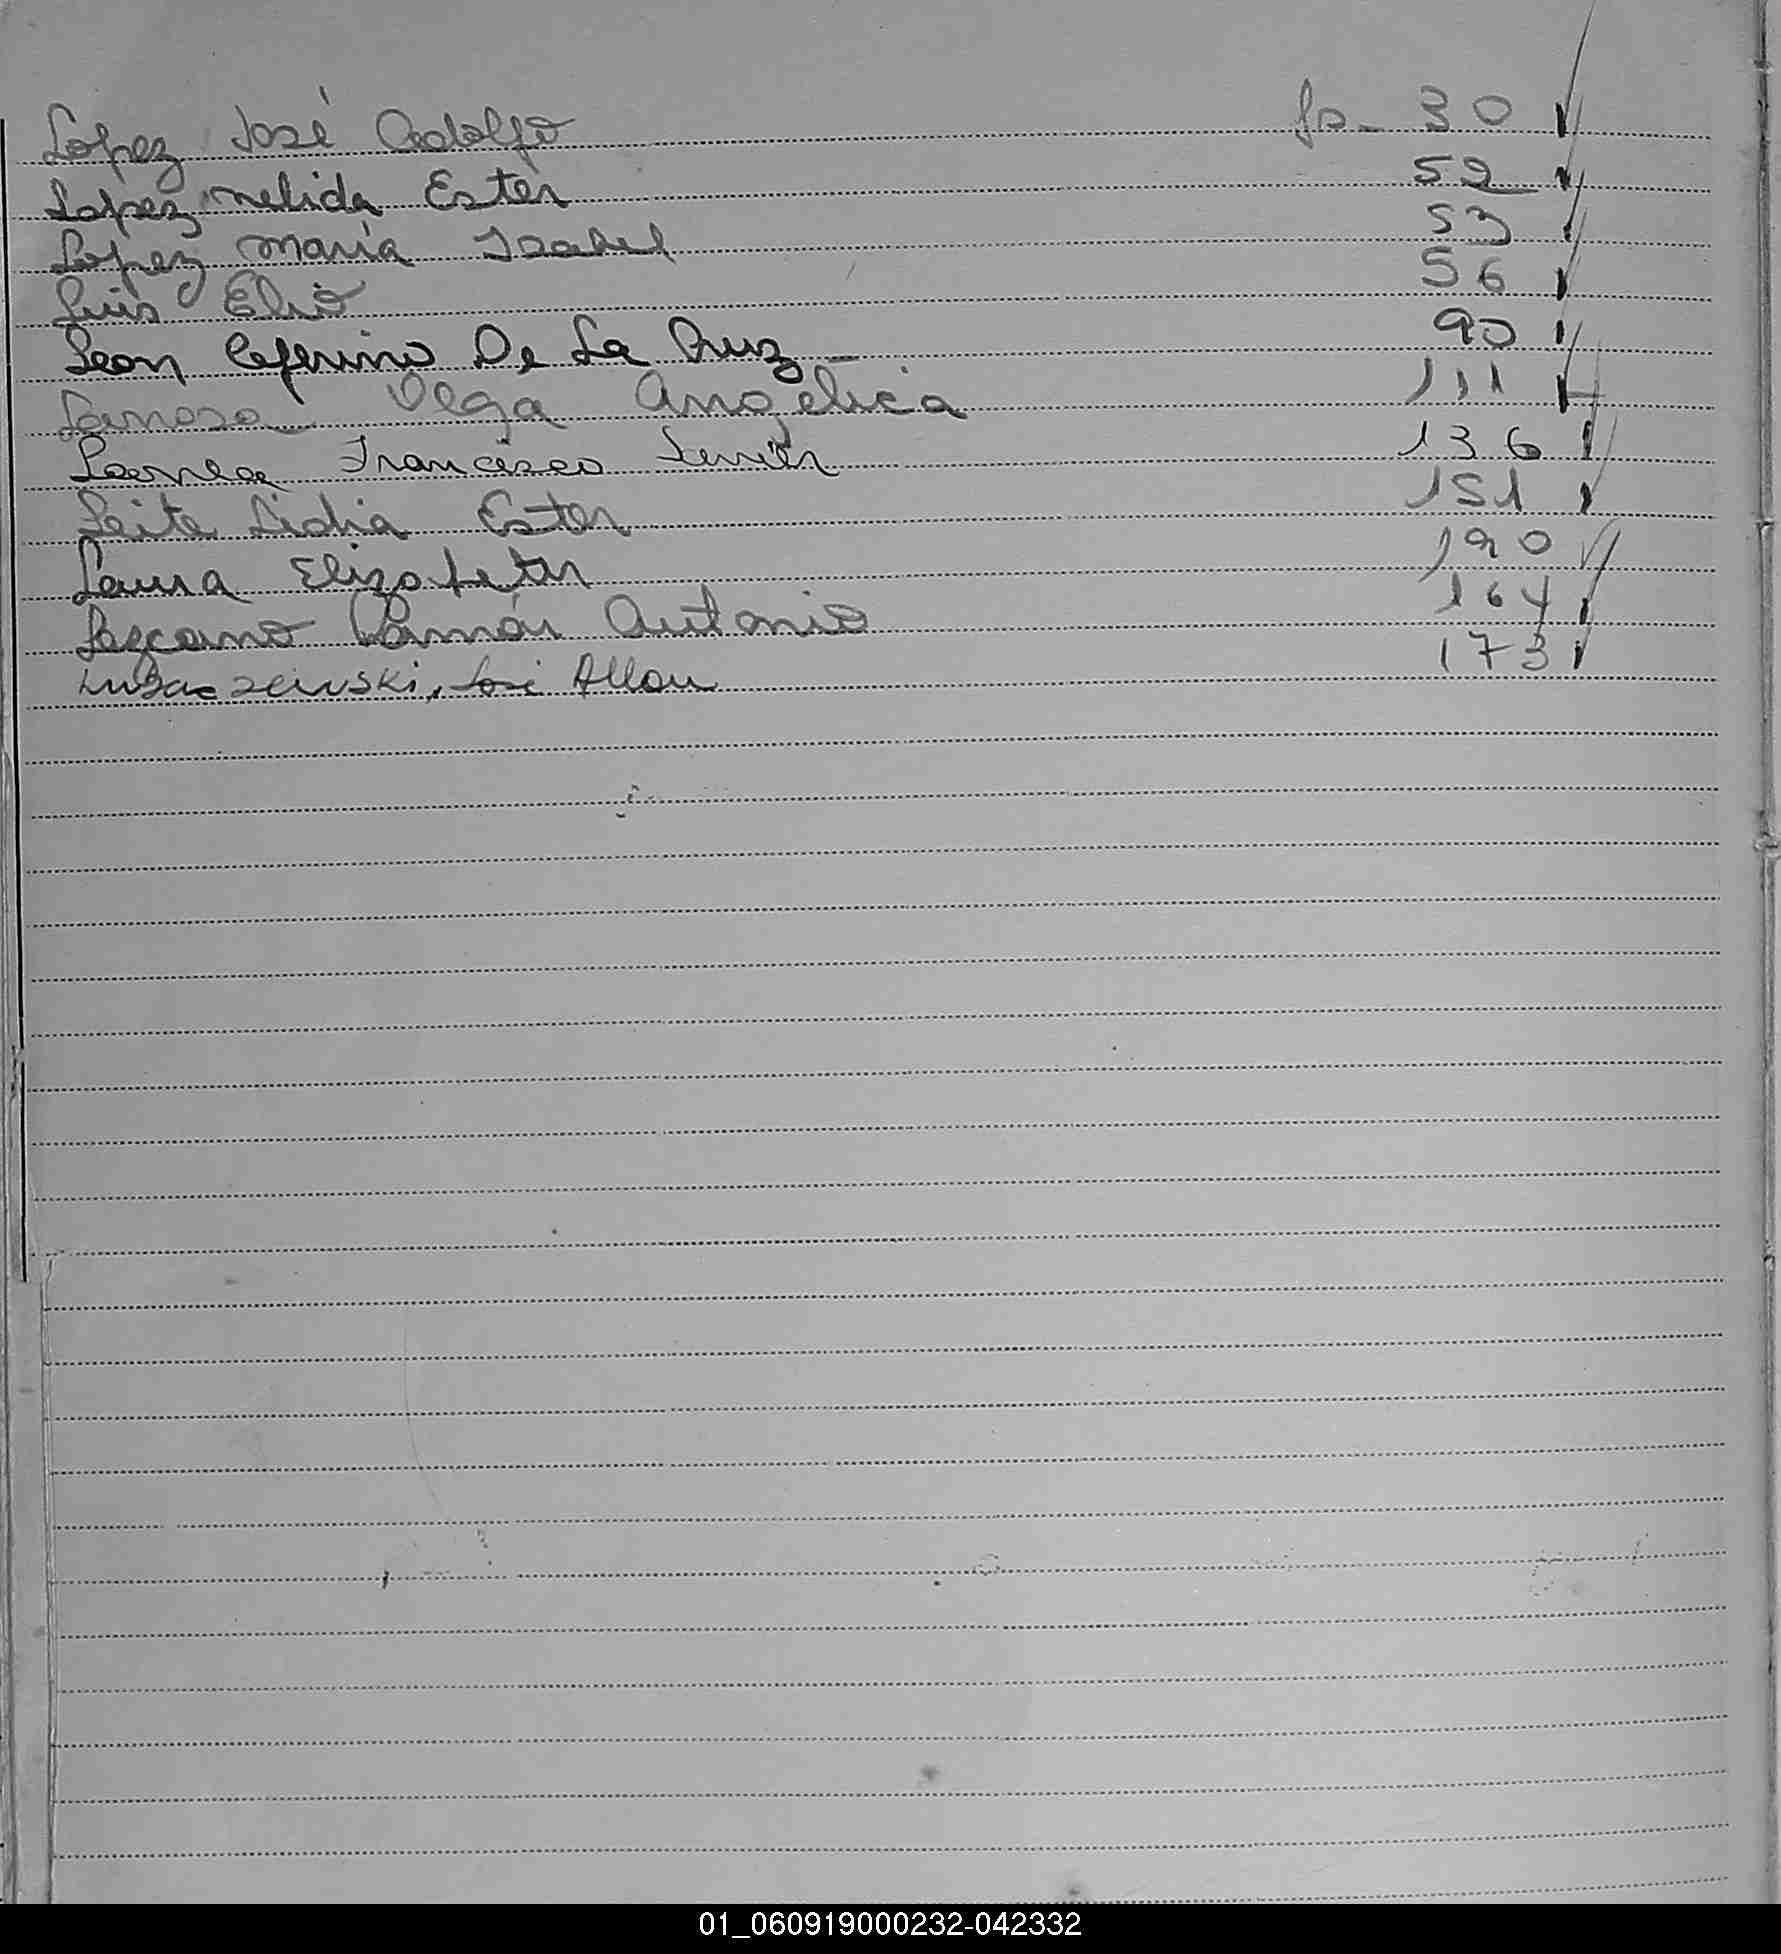 Lopez José Adolfo fs_ 30
Lopez Nelida Ester 52
Lopez María Isabel 53
Luis Elio 56
Leon Ceferino De La Cruz _ 90
Olga Angélica 111
Francisco 136
Leite Lidia Ester 151
Laura Elizabeth 190
Lezcano Ramón Antonio 164
José 173
01_060919000232-042332